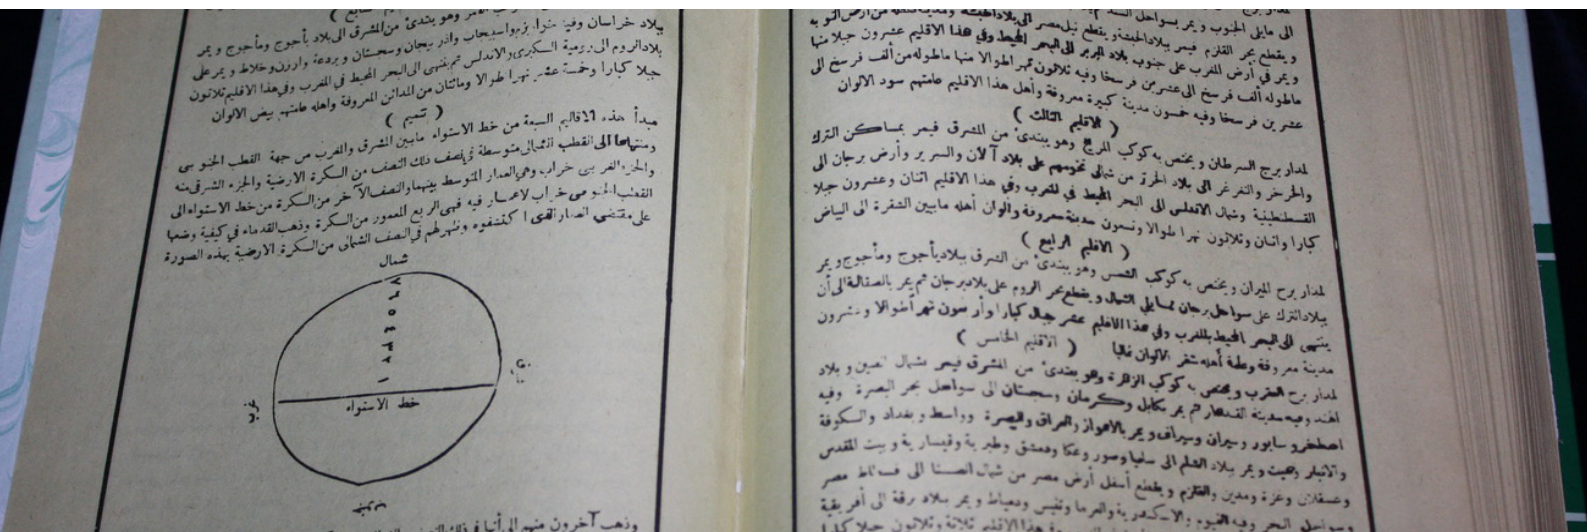 الى مايلى الجنوب ويمر بسواحل السند
و يقطع بحر القلزم فيمر ببلاد الحبشة ويقطع نيل مصر الى بلاد الحبشة من أرض النوبه
و يمر فى أرض المغرب على جنوب بلاد البربر الى البحر المحيط وفى هذا الاقليم عشرون جبلا منها
ماطوله ألف فرسخ الى عشرين فرسخا وفيه ثلاثون نهرا طوالا منها ماطوله من ألف فرسخ الى
عشرين فرسخا وفيه خمسون مدينة كبيرة معروفة وأهل هذا الاقليم عامتهم سود الالوان
( الاقليم الثالث )
لمدار برج السرطان و يختص به كوكب المريخ وهو يبتدئ من المشرق فيمر بمساكن الترك
والخرخر والتغرغر الى بلاد الخزر من شمالى تخومهم على بلاد آ لان والسرير وأرض برجان الى
القسطنطينية وشمال الاندلس الى البحر المحيط فى المغرب وفى هذا الاقليم اثنان وعشرون جبلا
كبارا واثنان وثلاثون نهرا طوالا وتسعون مدينة معروفة وألوان أهله مابين الشقرة الى البياض
( الاقليم الرابع )
لمدار برج الميزان و يختص به كوكب الشمس وهو يبتدئ من الشرق ببلاد يأجوج ومأجوج و يمر
ببلاد الترك على سواحل برجان ممايلى الشمال و يقطع بحر الروم على بلاد برجان ثم يمر بالصقالبة الى أن
ينتهى الى البحر المحيط بالمغرب وفى هذا الاقليم عشر جبال كبارا وأربعون نهرا طوالا وعشرون
مدينة معروفة وعامة أهله شقر الالوان غالبا ( الاقليم الخامس )
لمدار برج العقرب ويختص به كوكب الزهرة وهو يبتدئ من المشرق فيمر بشمال الصين و بلاد
الهند وفيه مدينة القندهار ثم يمر بكابل وكرمان وسجستان الى سواحل بحر البصرة وفيه
اصطخر و سابور وسيران وسيراف ويمر بالاهواز والعراق والبصرة وواسط و بغداد والكوفة
والانبار وهيت ويمر ببلاد الشام الى سلميا وصور وعكا ودمشق وطبرية وقيسارية وبيت المقدس
وعسقلان وغزة ومدين والقلزم و يقطع أسفل أرض مصر من شمال الى فسطاط مصر
وسواحل البحر وفيه الفيوم والاسكندرية والفرما وتنيس ودمياط و يمر ببلاد برقة الى أفريقية
هذا الاقليم ثلاثة وثلاثون جبلا كبارا
وهو يبتدئ من المشرق الى بلاد يأجوج ومأجوج و يمر
ببلاد خراسان وفيه خوارزم واسبيجاب واذربيجان وسجستان و بردعة وارزن وخلاط و يمر على
بلاد الروم الى رومية الكبرى والاندلس ثم ينتهى الى البحر المحيط فى المغرب وفى هذا الاقليم ثلاثون
جبلا كبارا وخمسة عشر نهرا طوالا ومائتان من المدائن المعروفة واهله عامتهم بيض الالوان
( تتميم )
مبدأ هذه الاقاليم السبعة من خط الاستواء مابين المشرق والغرب من جهة القطب الجنوبى
ومنتهاها الى القطب الشمالى متوسطة فى نصف ذلك النصف من السكرة الارضية والجزء الشرقى منه
والجزء الغربى خراب وهى العمار المتوسط بينهما والنصف الآخر من السكرة من خط الاستواء الى
القطب الجنوبى خراب لاعمار فيه فهى الربع المعمور من السكرة وذهب القدماء فى كيفية وضعها
على مقتضى العمار الذى اكتشفوه وظهر لهم فى النصف الشمالى من السكرة الارضية بهذه الصورة
شمال
٧
٦
٥
٤
٣
٢
١
خط الاستواء
غرب
جنوب
وذهب آخرون منهم الى أنها